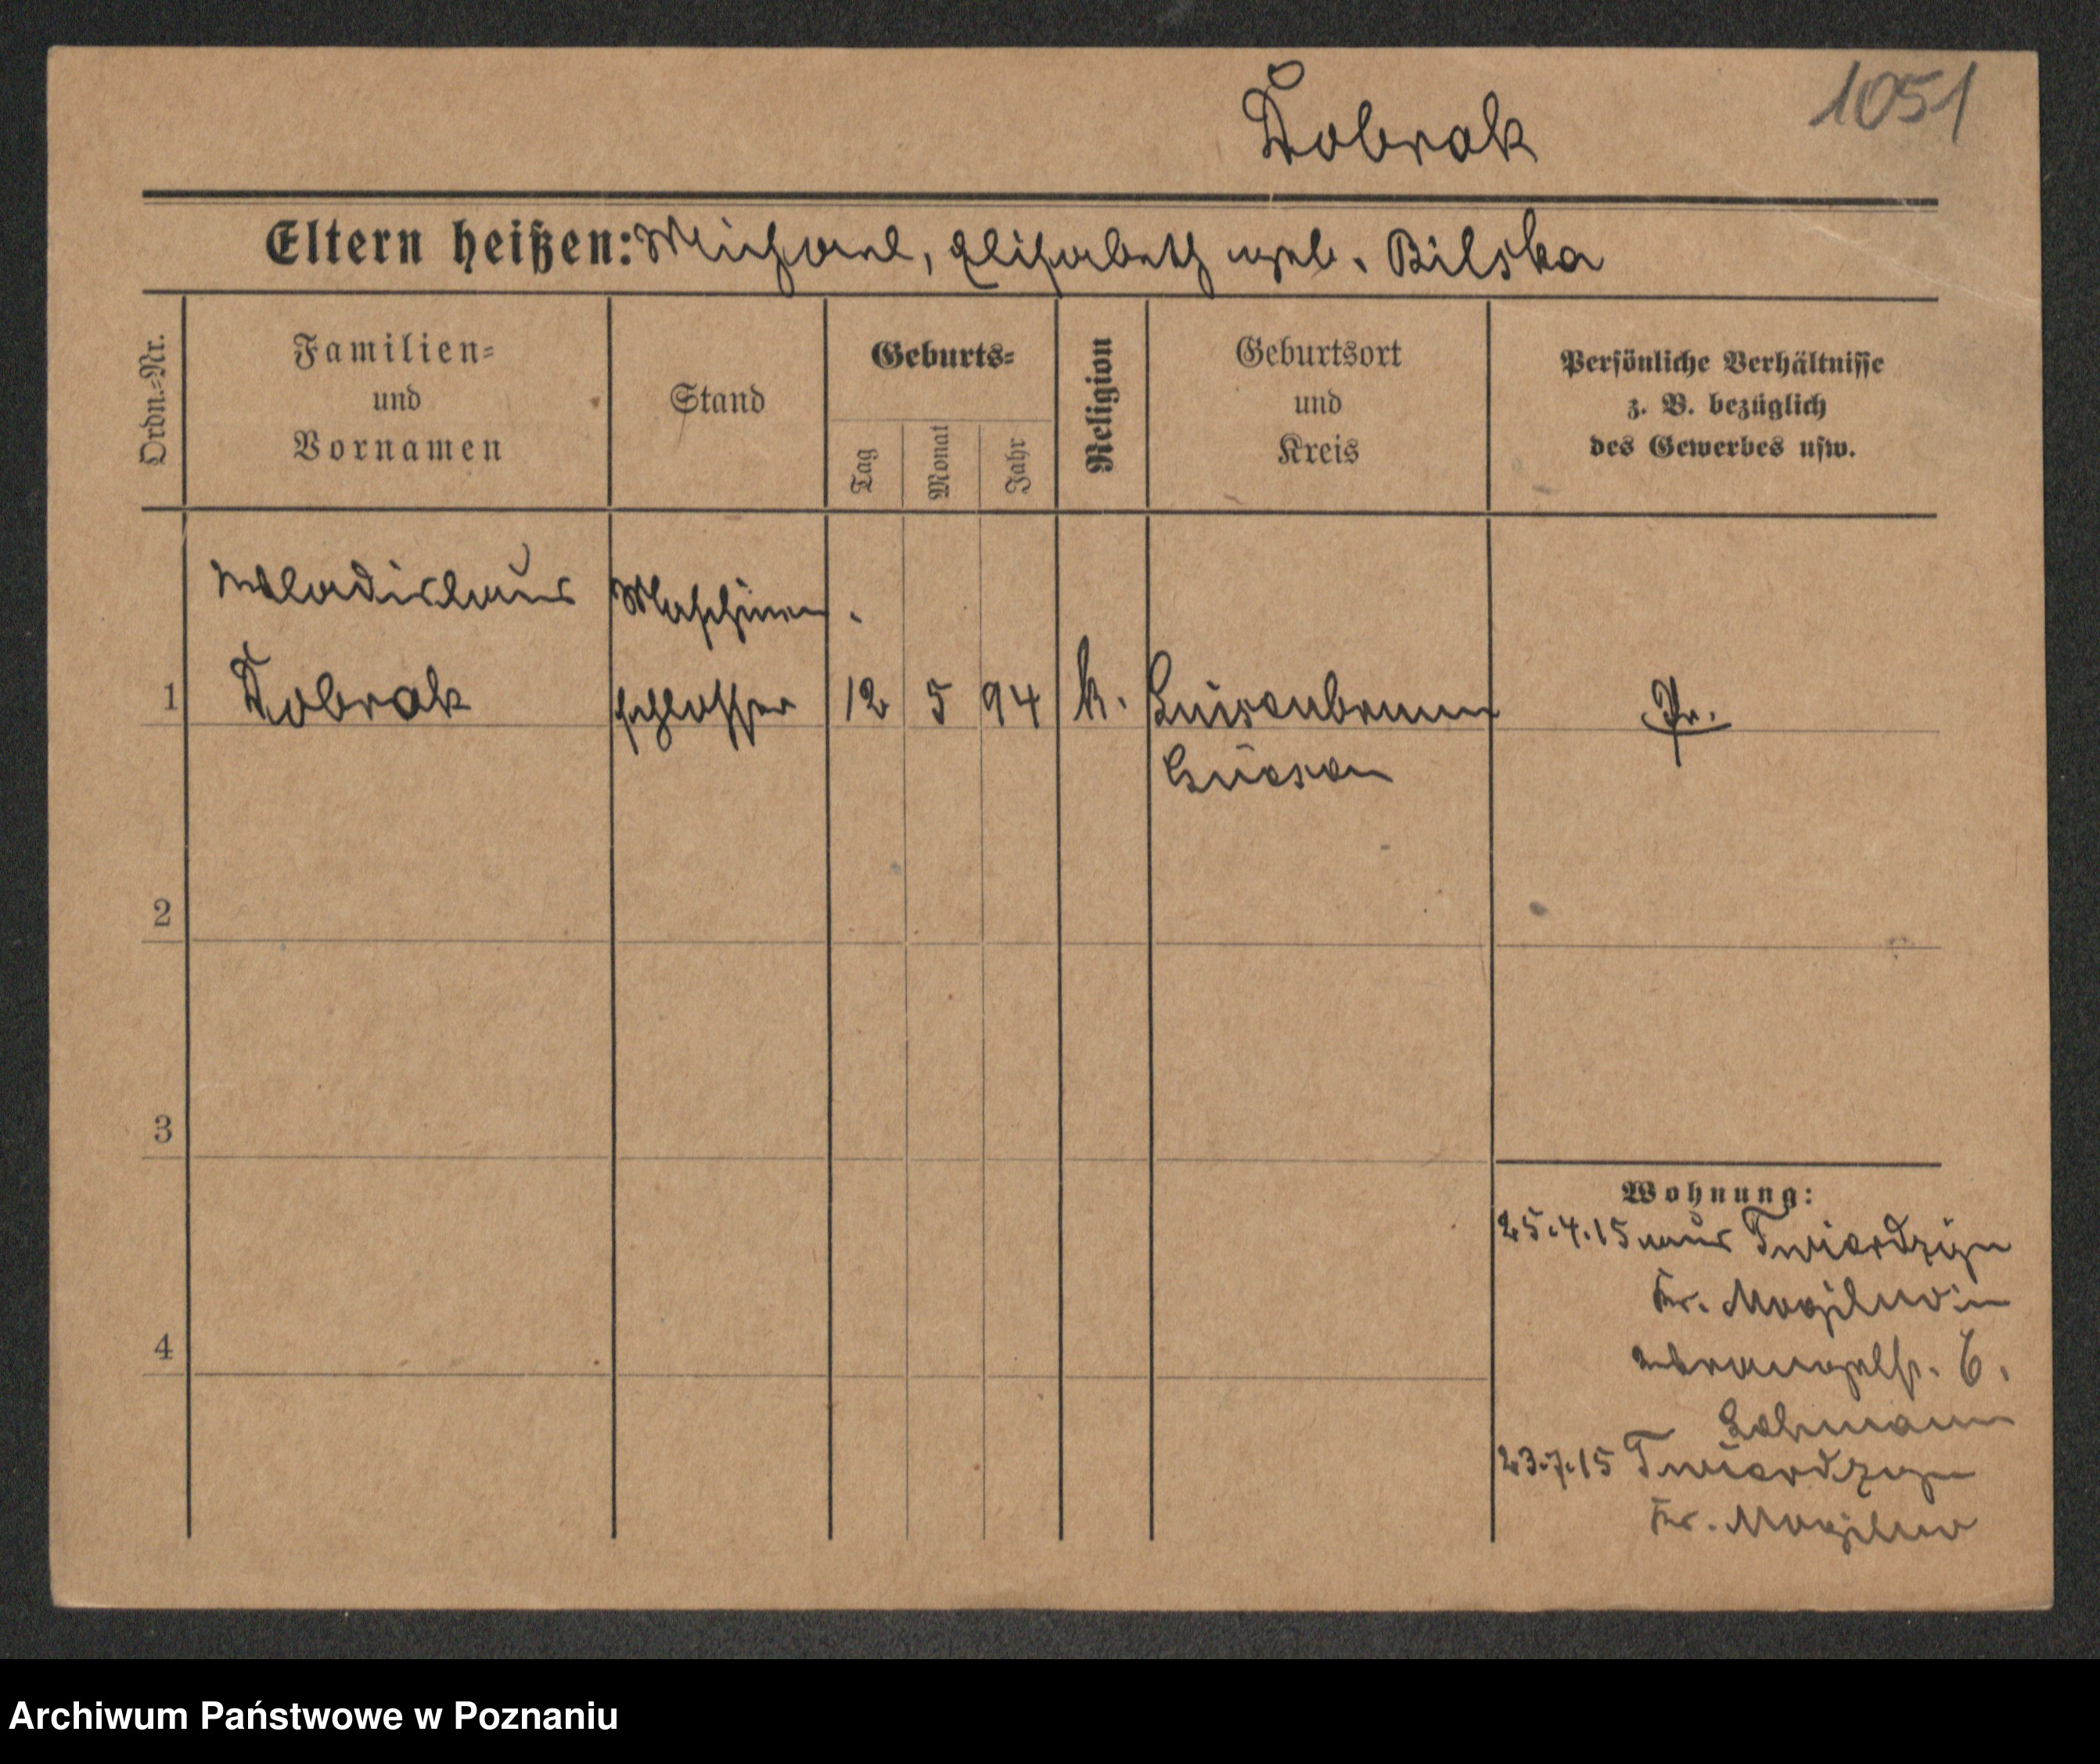 1051
Dobrak
Eltern heißen: Michael, Elisabeth geb. Bilska
Ordn.-Nr.
Familien-
und
Vornamen
Stand
Geburts-
Tag
Monat
Jahr
Religion
Geburtsort
und
Kreis
Persönliche Verhältnisse
z. B. bezüglich
des Gewerbes usw.
Wladislaus Maschinen-
1 Dobrak schlosser 12 5 94 k. Luisenbrunn Pr.
Gnesen
2
3
4
Wohnung:
25.4.15 aus Twierdzin
Kr. Mogilno in
Wrangelstr. 6.
Lohmann
23.7.15 Twierdzin
Kr. Mogilno
Archiwum Państwowe w Poznaniu